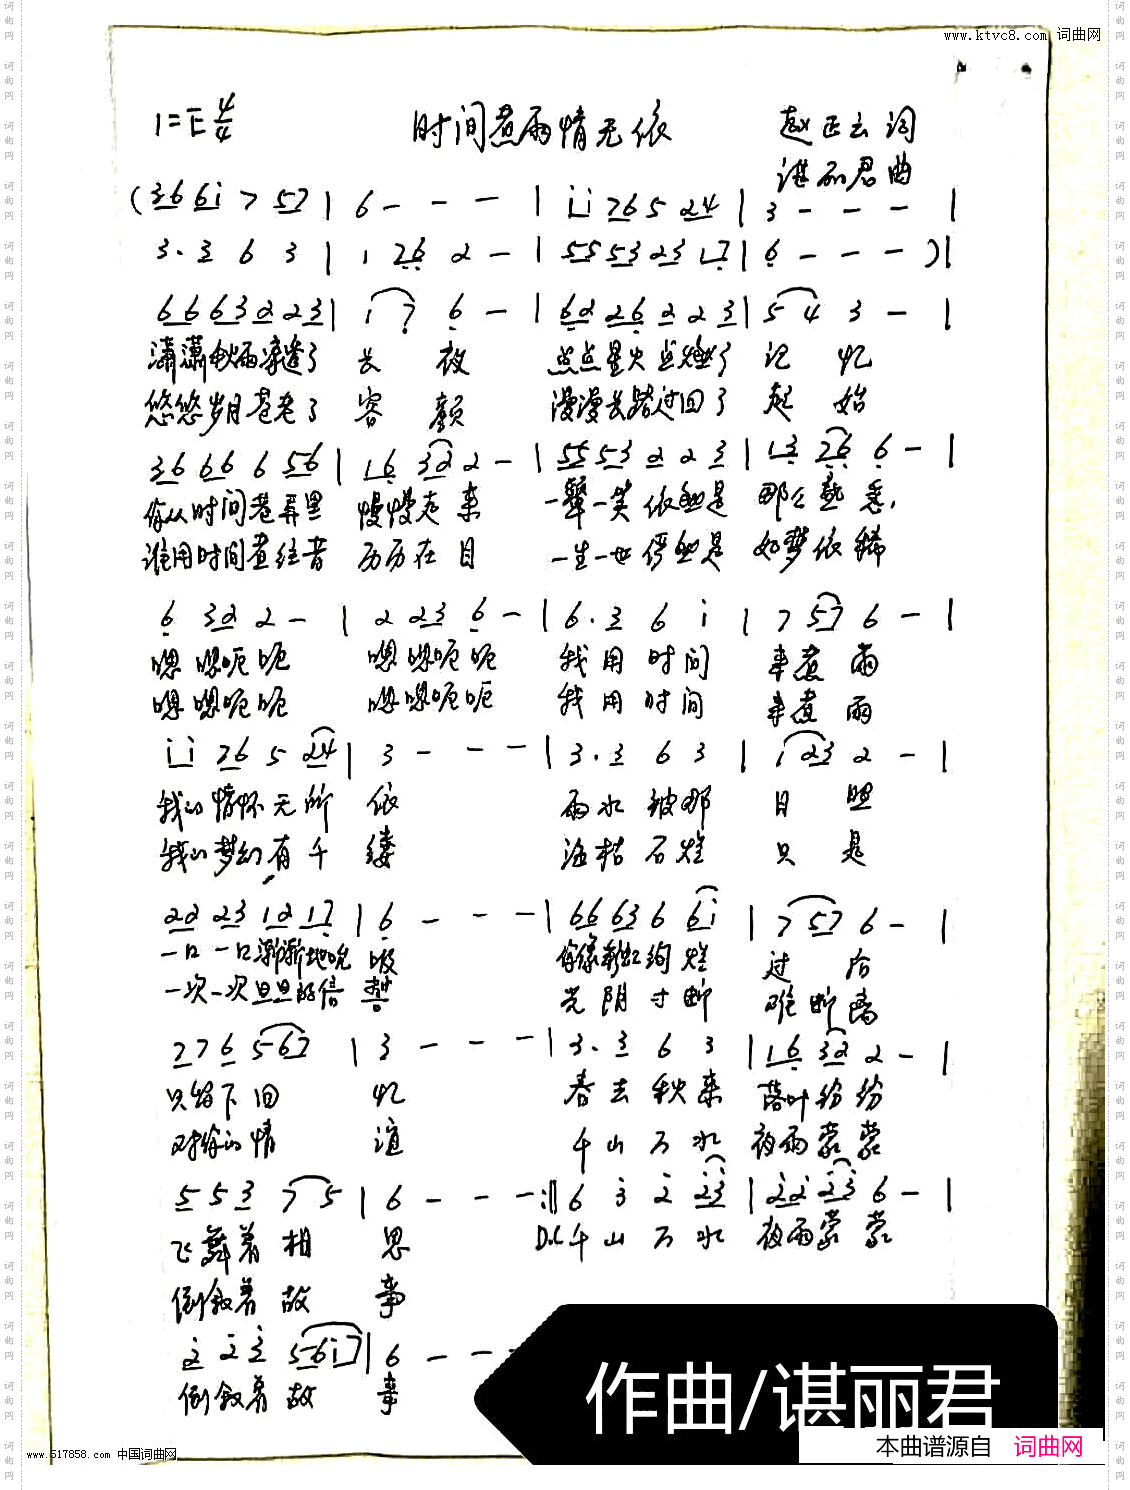 www.ktvc8.com 词曲网
1=E 4/4 时间煮雨情无依 赵正云词
谌丽君曲
(3 6 6 i 7 5 7 | 6 - - - | i i 7 6 5 2 4 | 3 - - - |
3. 3 6 3 | 1 2 6 2 - | 5 5 5 3 2 3 1 7 | 6 - - - )|
6 6 6 3 2 2 3 | 1 7 6 - | 6 2 2 6 2 2 3 | 5 4 3 - |
潇潇秋雨凉透了 长夜 点点星火点燃了 记忆
悠悠岁月苍老了 容颜 漫漫长路过回了 起始
3 6 6 6 6 5 6 | 1 6 3 2 2 - | 5 5 5 3 2 2 3 | 1 3 2 6 6 - |
你从时间巷弄里 慢慢走来 一颦一笑依然是 那么熟悉,
谁用时间煮往昔 历历在目 一生一世俨然是 如梦依稀
6 3 2 2 - | 2 2 3 6 - | 6. 3 6 i | 7 5 7 6 - |
嗯嗯呃呃 嗯嗯呃呃 我用时间 来煮雨
嗯嗯呃呃 嗯嗯呃呃 我用时间 来煮雨
i i 7 6 5 2 4 | 3 - - - | 3. 3 6 3 | 1 2 3 2 - |
我的情怀无所 依 雨水被那 日照
我的梦幻有千 缕 海枯石烂 只是
2 2 2 3 1 2 1 7 | 6 - - - | 6 6 6 3 6 6 i | 7 5 7 6 - |
一口一口渐渐地吮 吸 你像彩虹绚烂 过后
一次一次旦旦的信 誓 光阴寸断 难断离
2 7 6 5 6 7 | 3 - - - | 3. 3 6 3 | 1 6 3 2 2 - |
只留下回 忆 春去秋来 落叶纷纷
对你的情 谊 千山万水 夜雨蒙蒙
5 5 3 7 5 | 6 - - - :‖ 6 3 2 2 3 | 2 2 2 3 6 - |
飞舞着相 思 D.C 千山万水 夜雨蒙蒙
倒叙着故 事
2 2 3 5 6 i 7 | 6 - - -
倒叙着故 事
作曲/谌丽君
本曲谱源自 词曲网
www.517858.com 中国词曲网